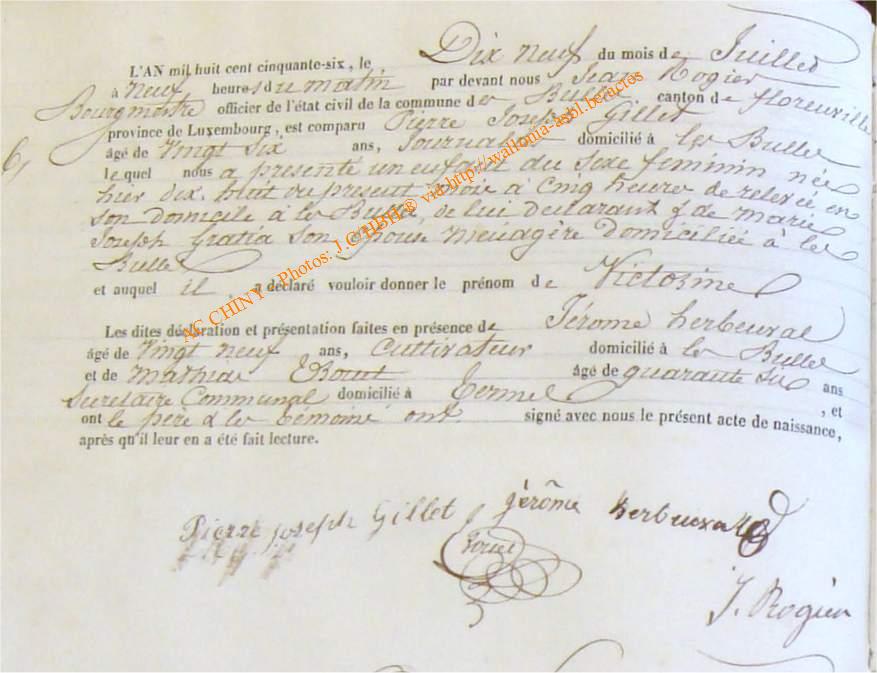 L'AN mil huit cent cinquante-six, le Dix neuf du mois de Juillet
à neuf heures du matin par devant nous Jean Rogier
Bourgmestre officier de l'état civil de la commune de Bulles canton de florenville
province de Luxembourg, est comparu Pierre Joseph Gillet
6, âgé de Vingt Six ans, Journalier domicilié à les Bulles
lequel nous a présenté un enfant du Sexe feminin née
hier dix huit du présent mois à Cinq heures de relevée en
son domicile à les Bulles, de lui déclarant & de Marie
Joseph Gratia Son Epouse Menagère domiciliée à les
Bulles
et auquel il a déclaré vouloir donner le prénom de Victorine
Les dites déclaration et présentation faites en présence de Jérome herbeuval
âgé de Vingt neuf ans, Cultivateur domicilié à les Bulles
et de Mathieu âgé de quarante Six ans
Secretaire Communal domicilié à Termes , et
ont le père & les témoins ont signé avec nous le présent acte de naissance,
après qu'il leur en a été fait lecture.
Pierre joseph Gillet jérôme herbeuval
J. Rogier
AC CHINY - Photos: J.C HBH ® via http://wallonia-asbl.be/actes